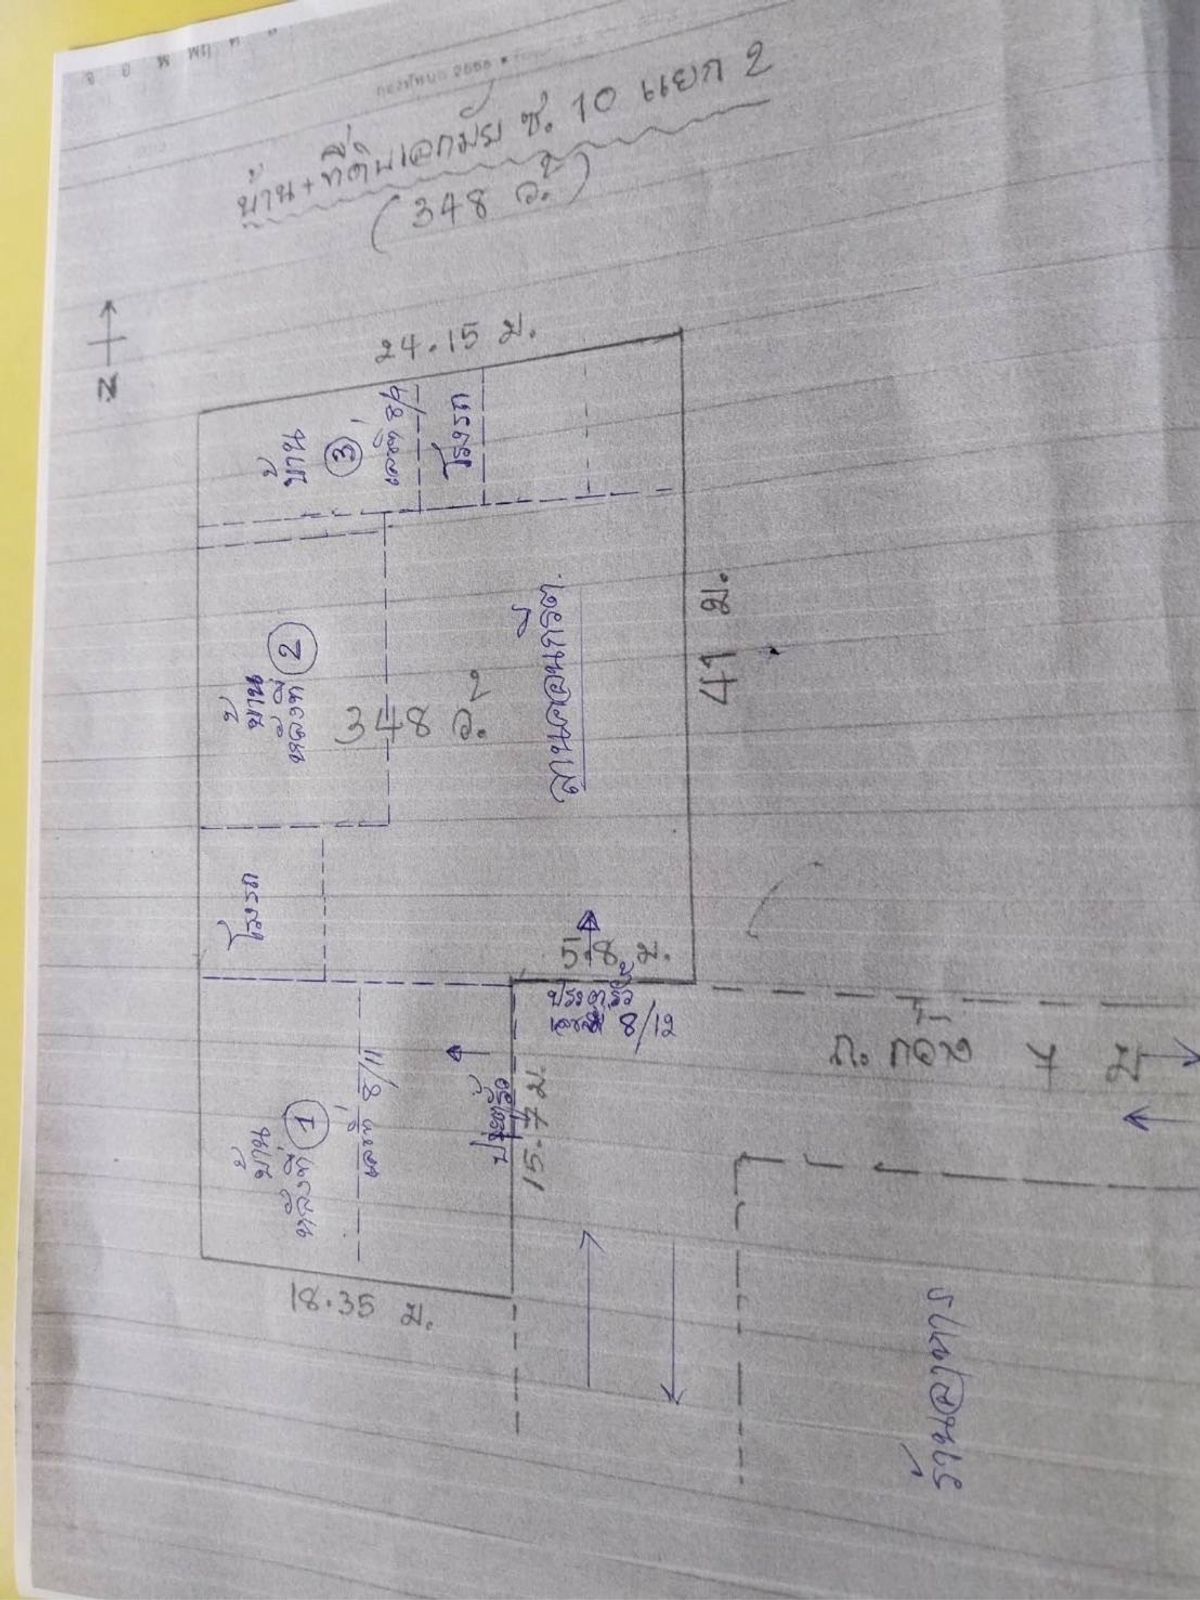 บ้าน + ที่ดินเอกมัย ซ. 10 แยก 2
(348 ว.²)
N
24.15 ม.
บ้าน
3
เลขที่ 8/9
โรงรถ
บ้าน
หลังที่ 2
348 ว.²
ลานคอนกรีต
41 ม.
โรงรถ
5.8 ม.
ประตูรั้ว
8/12
บ้าน
หลังที่ 1
เลขที่ 8/11
ประตูรั้ว
15.7 ม.
18.35 ม.
ถ. กว้าง 7 ม